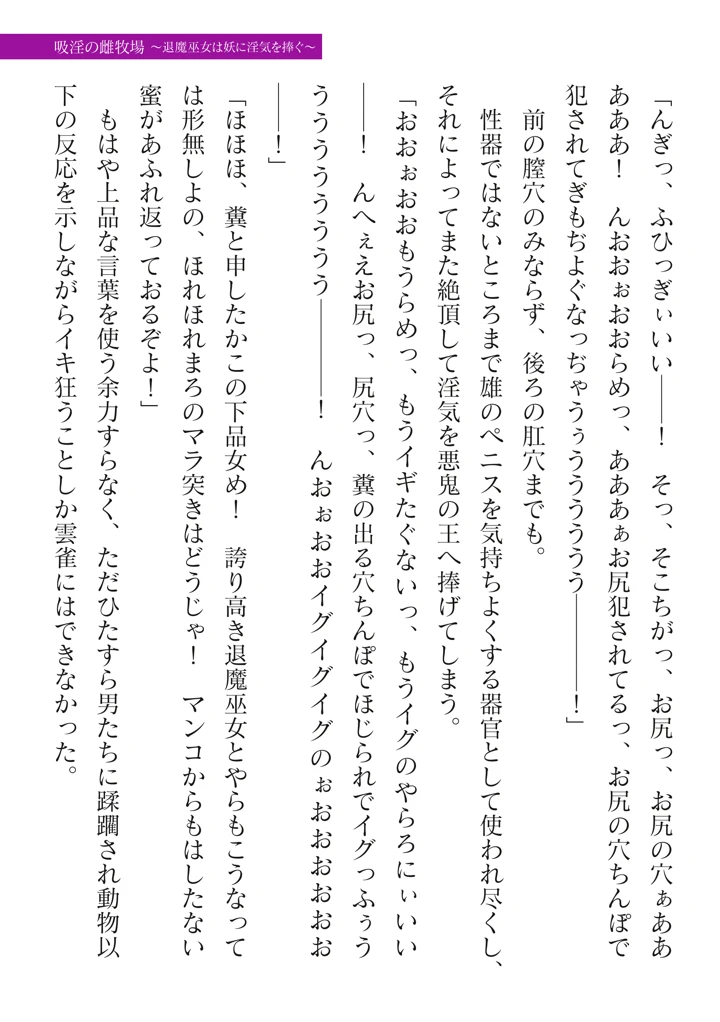 吸淫の雌牧場 ～退魔巫女は妖に淫気を捧ぐ～
「んぎっ、ふひっぎぃいい――！　そっ、そこちがっ、お尻っ、お尻の穴ぁああ
あああ！　んおおぉおおらめっ、あああぁお尻犯されてるっ、お尻の穴ちんぽで
犯されてぎもぢよぐなっぢゃうぅうううううう――――！」
　前の膣穴のみならず、後ろの肛穴までも。
　性器ではないところまで雄のペニスを気持ちよくする器官として使われ尽くし、
それによってまた絶頂して淫気を悪鬼の王へ捧げてしまう。
「おおぉおおもうらめっ、もうイギたぐないっ、もうイグのやらろにぃいい
――！　んへぇえお尻っ、尻穴っ、糞の出る穴ちんぽでほじられでイグっふぅう
うううううううう――――！　んおぉおおイグイグイグのぉおおおおおおお
――！」
「ほほほ、糞と申したかこの下品女め！　誇り高き退魔巫女とやらもこうなって
は形無しよの、ほれほれまろのマラ突きはどうじゃ！　マンコからもはしたない
蜜があふれ返っておるぞよ！」
　もはや上品な言葉を使う余力すらなく、ただひたすら男たちに蹂躙され動物以
下の反応を示しながらイキ狂うことしか雲雀にはできなかった。